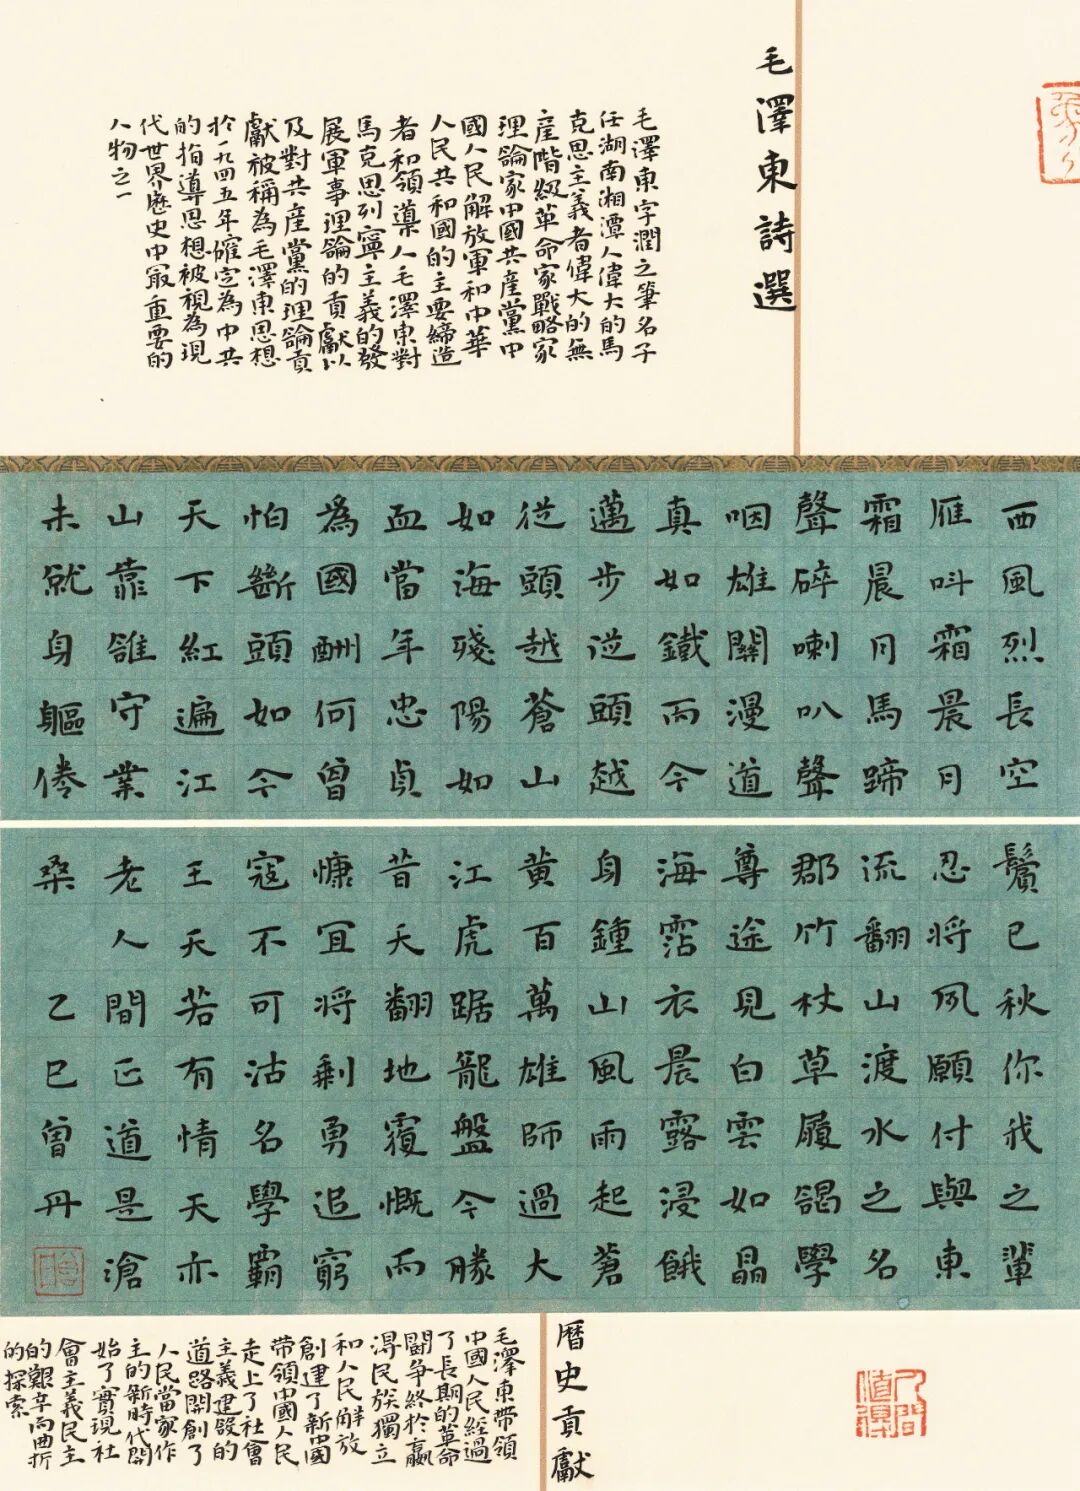 毛澤東詩選
毛澤東字潤之筆名子
任湖南湘潭人偉大的馬
克思主義者偉大的無
産階級革命家戰略家
理論家中國共産黨中
國人民解放軍和中華
人民共和國的主要締造
者和領導人毛澤東對
馬克思列寧主義的發
展軍事理論的貢獻以
及對共産黨的理論貢
獻被稱為毛澤東思想
於一九四五年確定為中共
的指導思想被視為現
代世界歷史中最重要的
人物之一
西風烈長空
雁叫霜晨月
霜晨月馬蹄
聲碎喇叭聲
咽雄關漫道
真如鐵而今
邁步從頭越
從頭越蒼山
如海殘陽如
血當年忠貞
為國酬何曾
怕斷頭如今
天下紅遍江
山靠誰守業
未就身軀倦
鬢已秋你我之輩
忍將夙願付與東
流翻山渡水之名
郡竹杖草履謁學
尊途見白雲如晶
海霑衣晨露浸餓
身鍾山風雨起蒼
黃百萬雄師過大
江虎踞龍盤今勝
昔天翻地覆慨而
慷宜將剩勇追窮
寇不可沽名學霸
王天若有情天亦
老人間正道是滄
桑 乙巳曾丹
歷史貢獻
毛澤東帶領
中國人民經過
了長期的革命
鬪争終於贏
得民族獨立
和人民解放
創建了新中國
帶領中國人民
走上了社會
主義建設的
道路開創了
人民當家作
主的新時代開
始了實現社
會主義民主
的艱辛而曲折
的探索
人間值得